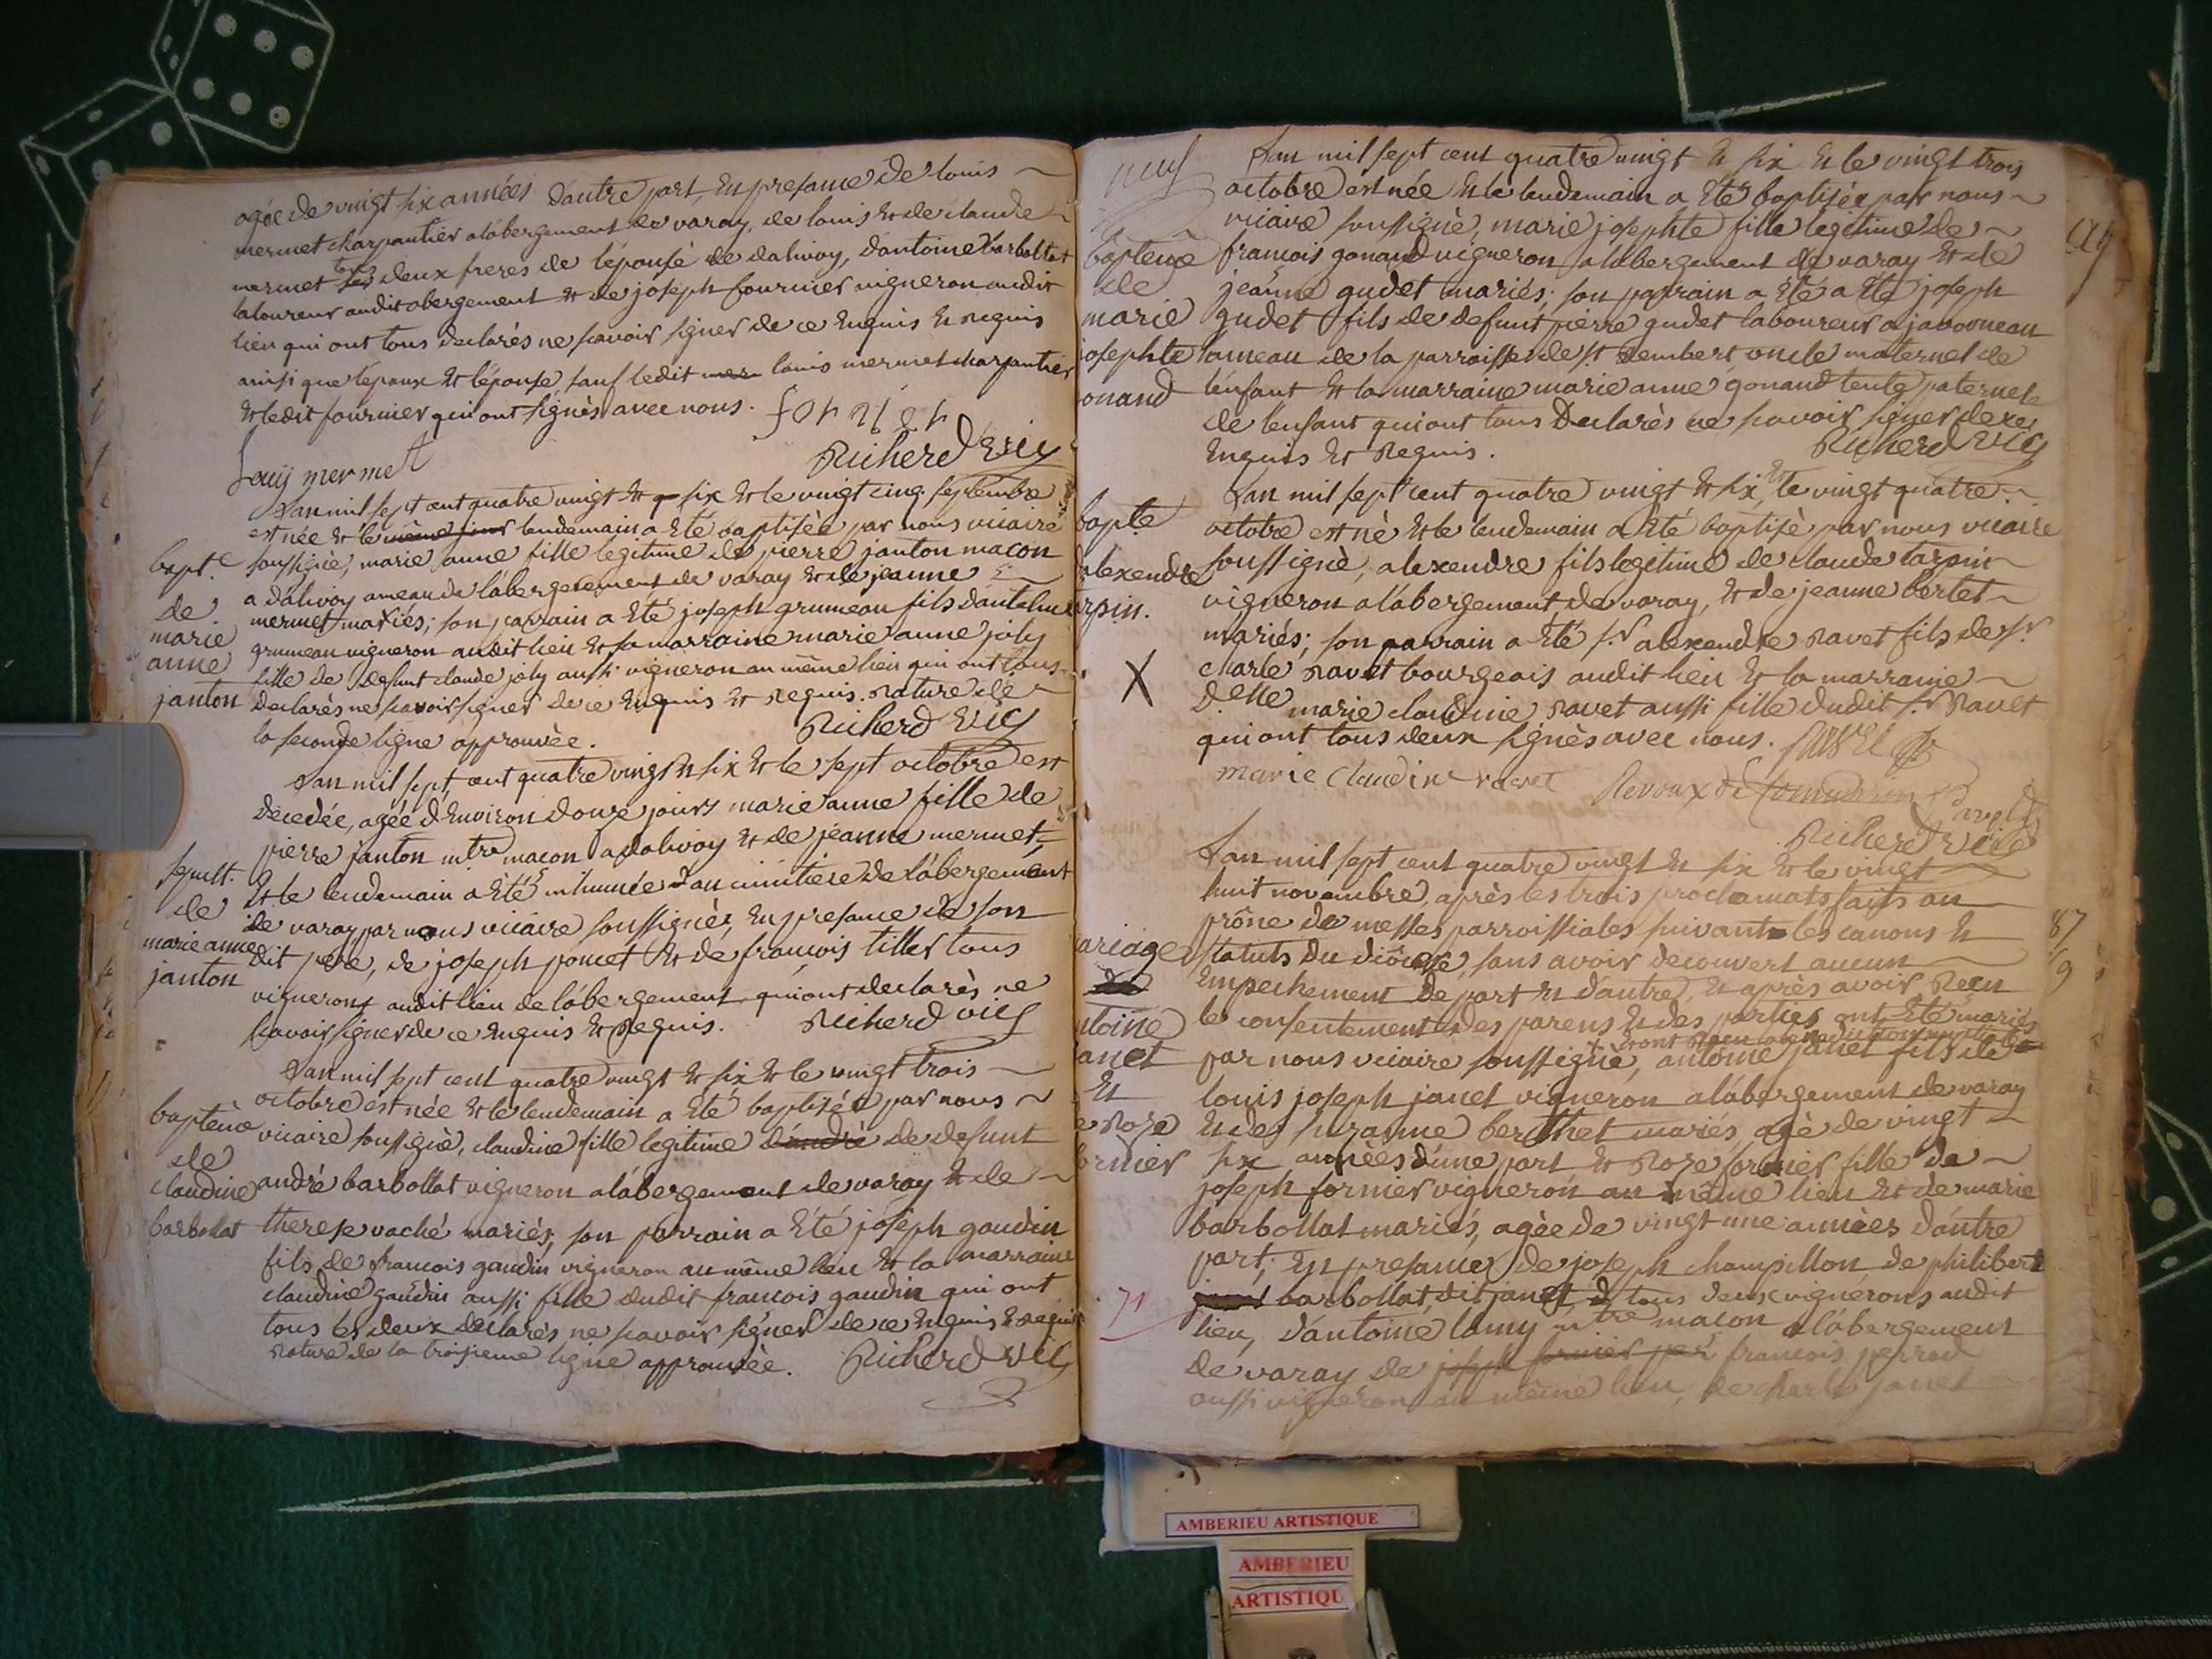 agée de vingt six années d'autre part, En presance de louis
mermet charpantier a l'abergement de varay, de louis Et de claude
mermet tous deux freres de l'épouse de dalivoy, d'antoine barbollat
laboureur audit abergement Et de joseph fournier vigneron audit
lieu qui ont tous declarés ne scavoir signer de ce Enquis Et Requis
ainsi que l'époux Et l'épouse, sauf ledit mer louis mermet charpantier
Et ledit fournier qui ont signés avec nous.
Louij mermet
Richerd Vic
L'an mil sept cent quatre vingt Et q six Et le vingt cinq septembre
est née Et le même jour lendemain a Eté baptisée par nous vicaire
soussigné, marie anne fille legitime de pierre janton macon
a dalivoy ameau de l'abergement de varay Et de jeanne
mermet mariés; son parrain a Eté joseph grumeau fils d'antelme
grumeau vigneron audit lieu Et sa marraine marie anne joly
fille de defunt claude joly aussi vigneron au même lieu qui ont tous
declarés ne scavoir signer de ce Enquis Et Requis. Rature de
la seconde ligne approuvée.
Richerd Vic
bapt.e
de
marie
anne
janton
L'an mil sept cent quatre vingt Et six Et le sept octobre est
decedée, agée d'Environ douze jours marie anne fille de
pierre janton mtre macon a dalivoy Et de jeanne mermet
Et le lendemain a Eté inhumée au cimitiere de l'abergement
de varay par nous vicaire soussigné, En presance de son
dit pere, de joseph poncet Et de françois tiller tous
vignerons audit lieu de l'abergement qui ont declarés ne
scavoir signer de ce Enquis Et Requis.
Richerd Vic
sepult.
de
marie anne
janton
L'an mil sept cent quatre vingt Et six Et le vingt trois
octobre est née Et le lendemain a Eté baptisée par nous
vicaire soussigné, claudine fille legitime d'andré de defunt
andré barbollat vigneron a l'abergement de varay Et de
therese vaché mariés; son parrain a Eté joseph gaudin
fils de francois gaudin vigneron au même lieu Et la marraine
claudine gaudin aussi fille dudit francois gaudin qui ont
tous les deux declarés ne scavoir signer de ce Enquis Et Requis
Rature de la troisieme ligne approuvée.
Richerd Vic
baptême
de
claudine
barbollat
L'an mil sept cent quatre vingt Et six Et le vingt trois
octobre est née Et le lendemain a Eté baptisée par nous
vicaire soussigné, marie josephte fille legitime de
francois gonand vigneron a l'abergement de varay Et de
jeanne gudet mariés; son parrain a Eté a Eté joseph
gudet fils de defunt pierre gudet laboureur a javorneau
hameau de la parroisse de st rembert oncle maternel de
l'enfant Et la marraine marie anne gonand tente paternel
de l'enfant qui ont tous Declarés ne scavoir signer de ce
Enquis Et Requis.
Richerd Vic
baptême
de
marie
josephte
onand
L'an mil sept cent quatre vingt Et six, Et le vingt quatre
octobre est né Et le lendemain a Eté baptisé par nous vicaire
soussigné, alexendre fils legitime de claude tarpin
vigneron a l'abergement de varay, Et de jeanne bertet
mariés; son parrain a Eté sr alexendre Ravet fils de sr
charle Ravet bourgeois audit lieu Et la marraine
D.elle marie claudine Ravet aussi fille dudit sr Ravet
qui ont tous deux signés avec nous.
marie Claudine ravet
Richerd Vic
bapte
alexendre
arpin.
X
L'an mil sept cent quatre vingt Et six Et le vingt
huit novembre, après les trois proclamats faits au
prône de messes parroissiales suivant les canons Et
statuts du diocese, sans avoir decouvert aucun
Empechement De part Et d'autre, Et après avoir Reçu
le consentement des parens Et des parties, ont Eté mariés
par nous vicaire soussigné, antoine janet fils de
louis joseph janet vigneron a l'abergement de varay
Et de suzanne berthet mariés, agé de vingt
six années d'une part Et Roze fornier fille de
joseph fornier vigneron au même lieu Et de marie
barbollat mariés, agée de vingt une années d'autre
part; En presance de joseph champillon de philibert
janet barbollat, dit janet, tous deux vignerons audit
lieu, d'antoine lamy mtre macon a l'abergement
de varay de joseph fornier per francois perrod
aussi vigneron au même lieu, de charle janet
ariage
ntoine
anet
Et
e Roze
ornier
71
87
9
AMBERIEU ARTISTIQUE
AMBERIEU
ARTISTIQU